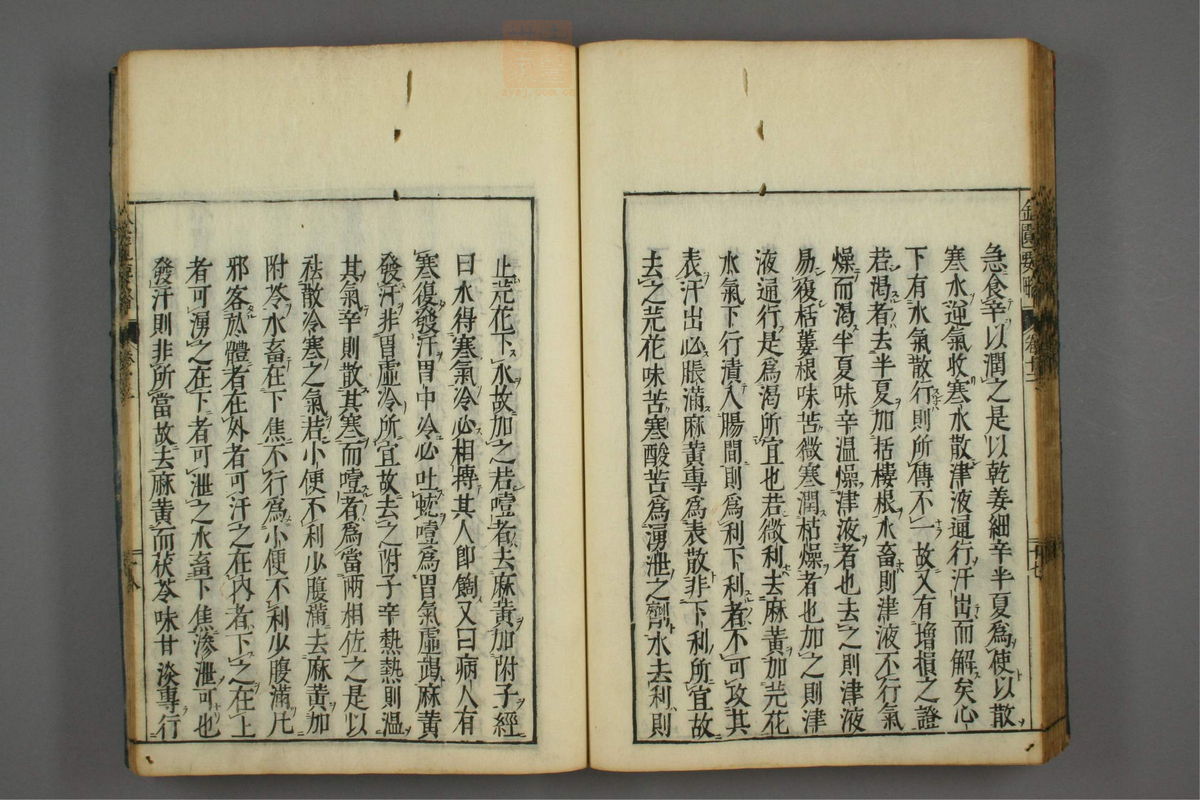 急食辛以潤之是以乾姜細辛半夏爲使以散
寒水逆氣收寒水散津液通行汗出而解矣心
下有水氣散行則所傳不一故又有增損之證
若渴者去半夏加括樓根水畜則津液不行氣
燥而渴半夏味辛溫燥津液者也去之則津液
易復栝蔞根味苦微寒潤枯燥者也加之則津
液通行是爲渴所宜也若微利去麻黃加芫花
水氣下行漬入腸間則爲利下利者不可攻其
表汗出必脹滿麻黃專爲表散非下利所宜故
去之芫花味苦寒酸苦爲湧泄之劑水去利則
止芫花下水故加之若噎者去麻黃加附子經
曰水得寒氣冷必相摶其人卽䭇又曰病人有
寒復發汗胃中冷必吐蚘噎爲胃氣虛竭麻黃
發汗非胃虛冷所宜故去之附子辛熱熱則溫
其氣辛則散其寒而噎者爲當兩相佐之是以
祛散冷寒之氣若小便不利少腹滿去麻黃加
茯苓水畜在下焦不行爲小便不利少腹滿凡
邪客於體者在外者可汗之在內者下之在上
者可湧之在下者可泄之水畜下焦滲泄可也
發汗則非所當故去麻黃而茯苓味甘淡專行
金匱要略